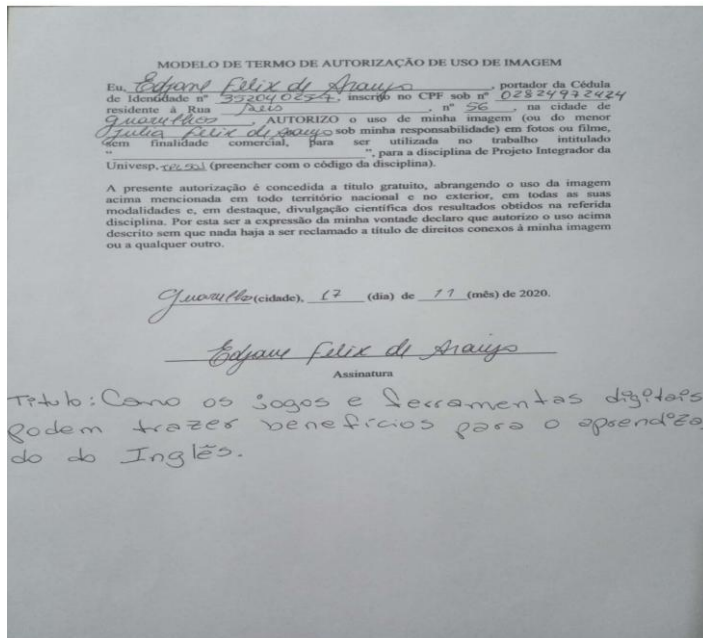 MODELO DE TERMO DE AUTORIZAÇÃO DE USO DE IMAGEM
Eu, Edjane Felix de Araujo, portador da Cédula
de Identidade nº 352040254, inscrito no CPF sob nº 02824972424
residente à Rua, nº 56, na cidade de
Guarulhos, AUTORIZO o uso de minha imagem (ou do menor
Julia Felix de Araujo sob minha responsabilidade) em fotos ou filme,
sem finalidade comercial, para ser utilizada no trabalho intitulado
" ", para a disciplina de Projeto Integrador da
Univesp, (preencher com o código da disciplina).
A presente autorização é concedida a título gratuito, abrangendo o uso da imagem
acima mencionada em todo território nacional e no exterior, em todas as suas
modalidades e, em destaque, divulgação científica dos resultados obtidos na referida
disciplina. Por esta ser a expressão da minha vontade declaro que autorizo o uso acima
descrito sem que nada haja a ser reclamado a título de direitos conexos à minha imagem
ou a qualquer outro.
Guarulhos (cidade), 17 (dia) de 11 (mês) de 2020.
Edjane Felix de Araujo
Assinatura
Título: Como os jogos e ferramentas digitais
podem trazer benefícios para o aprendiza
do do Inglês.